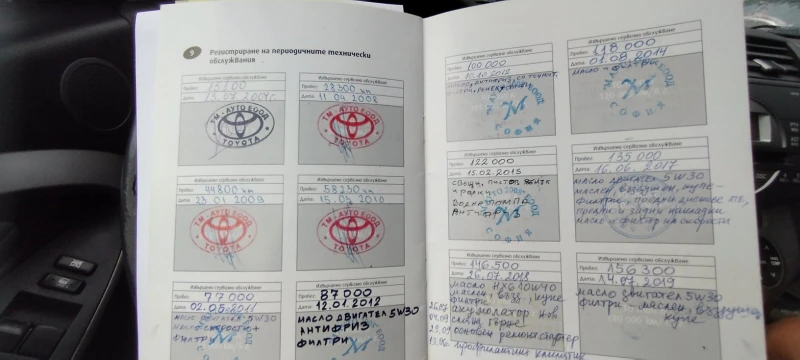 9 Регистриране на периодичните технически
обслужвания
Извършено сервизно обслужване
Пробег: 15100
Дата:
ТМ АУТО ЕООД
TOYOTA
Извършено сервизно обслужване
Пробег: 28300 км
Дата: 11.04.2008
ТМ АУТО ЕООД
TOYOTA
Извършено сервизно обслужване
Пробег: 44800 км
Дата: 23.01.2009
ТМ АУТО ЕООД
TOYOTA
Извършено сервизно обслужване
Пробег: 58230 км
Дата: 2010
ТМ АУТО ЕООД
TOYOTA
Извършено сервизно обслужване
77000
Дата: 02.05.2011
масло двигател 5W30
масло скорости +
филтри
Извършено сервизно обслужване
87000
Дата: 12.01.2012
МАСЛО ДВИГАТЕЛ 5W30
АНТИФРИЗ
ФИЛТРИ
Извършено сервизно обслужване
Пробег: 100 000
Дата:
ЕООД
СОФИЯ
Извършено сервизно обслужване
Пробег: 118 000
Дата: 01.08.2014
масло + филтри
ЕООД
СОФИЯ
Извършено сервизно обслужване
Пробег: 122 000
Дата: 15.02.2015
ВОДНА ПОМПА
АНТИФРИЗ
ЕООД
СОФИЯ
Извършено сервизно обслужване
Пробег: 135 000
Дата: 16.06.2017
масло двигател 5W30
маслен, въздушен, купе-
филтри, предни дискове
предни и задни накладки
масло и филтър на скорости
Извършено сервизно обслужване
Пробег: 146.500
Дата: 26.07.2018
масло HX6 10W40
маслен, възд., купе
филтри
акумулатор нов
основен ремонт стартер
профилактика климатик
Извършено сервизно обслужване
Пробег: 156 300
Дата: 14.07.2019
масло двигател 5w30
филтри - маслен, въздушен
купе